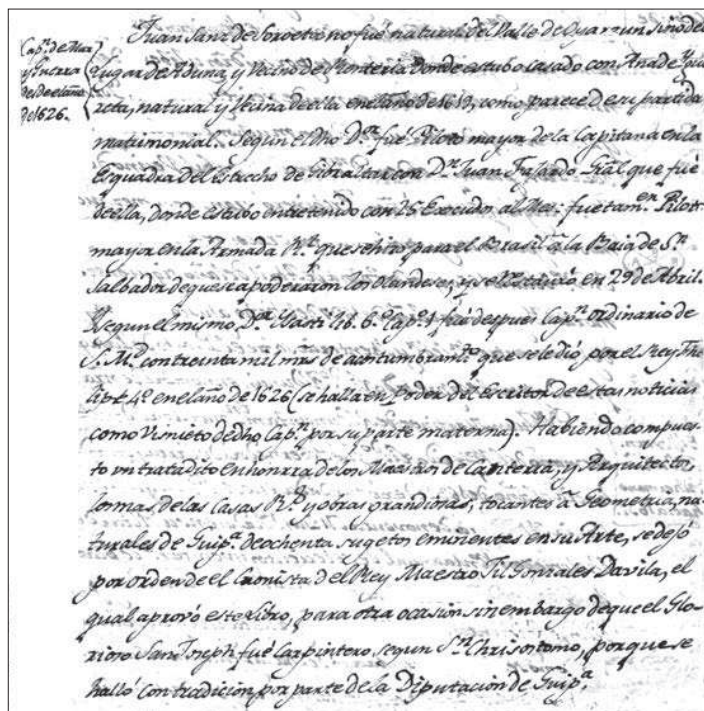 Cap.n de Mar
y Guerra
desde el año
de 1626.
Juan Sanz de Soroeta no fué natural del Valle de Oyarzun sino del
Lugar de Aduna, y Vecino de Renteria donde estubo casado con Ana de
reta, natural y Vecina de ella en el año de 1613, como parece de su partida
matrimonial. Segun el dho D.or fué Piloto mayor de la Capitana en la
Esquadra del Estrecho de Gibraltar con D.n Juan Faxardo Gral que fué
de ella, donde estubo entretenido con 25 Escudos al Mes: fue tam.en Piloto
mayor en la Armada R.l que se hizo para el Brasil a la Baia de S.n
Salbador de que se apoderaron los Olandeses, y se restauró en 29 de Abril.
Segun el mismo D.or Ysasti lib. 6.o Cap.o 1 fué despues Cap.n ordinario de
S. M.d con treinta mil mrs de acostumbram.to que se le dió por el Rey Phe
lipe 4.o en el año de 1626 (se halla en Poder del Escritor de estas noticias
como Visnieto de dho Cap.n por su parte materna). Habiendo compues-
to un tratadito en honrra de los Maestros de Canteria, y Arquitectos,
formas de las Casas R.s y obras grandiosas, tocantes à Geometria, na-
turales de Guip.a de ochenta sugetos eminentes en su Arte, se dejó
por orden de el Cronista del Rey Maestro Gil Gonzales Davila, el
qual aprovó este Libro, para otra ocasion sin embargo de que el Glo-
rioso San Joseph fué Carpintero segun S.n Chrisostomo, porque se
halló contradicion por parte de la Diputacion de Guip.a,